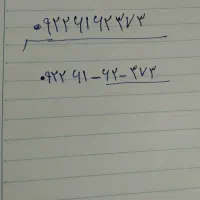 ۰۹۲۲۶۱۶۲۳۷۳
۰۹۲۲ ۶۱ – ۶۲ – ۳۷۳